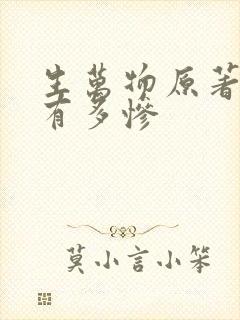 生万物原著
有多惨
莫小言小笨